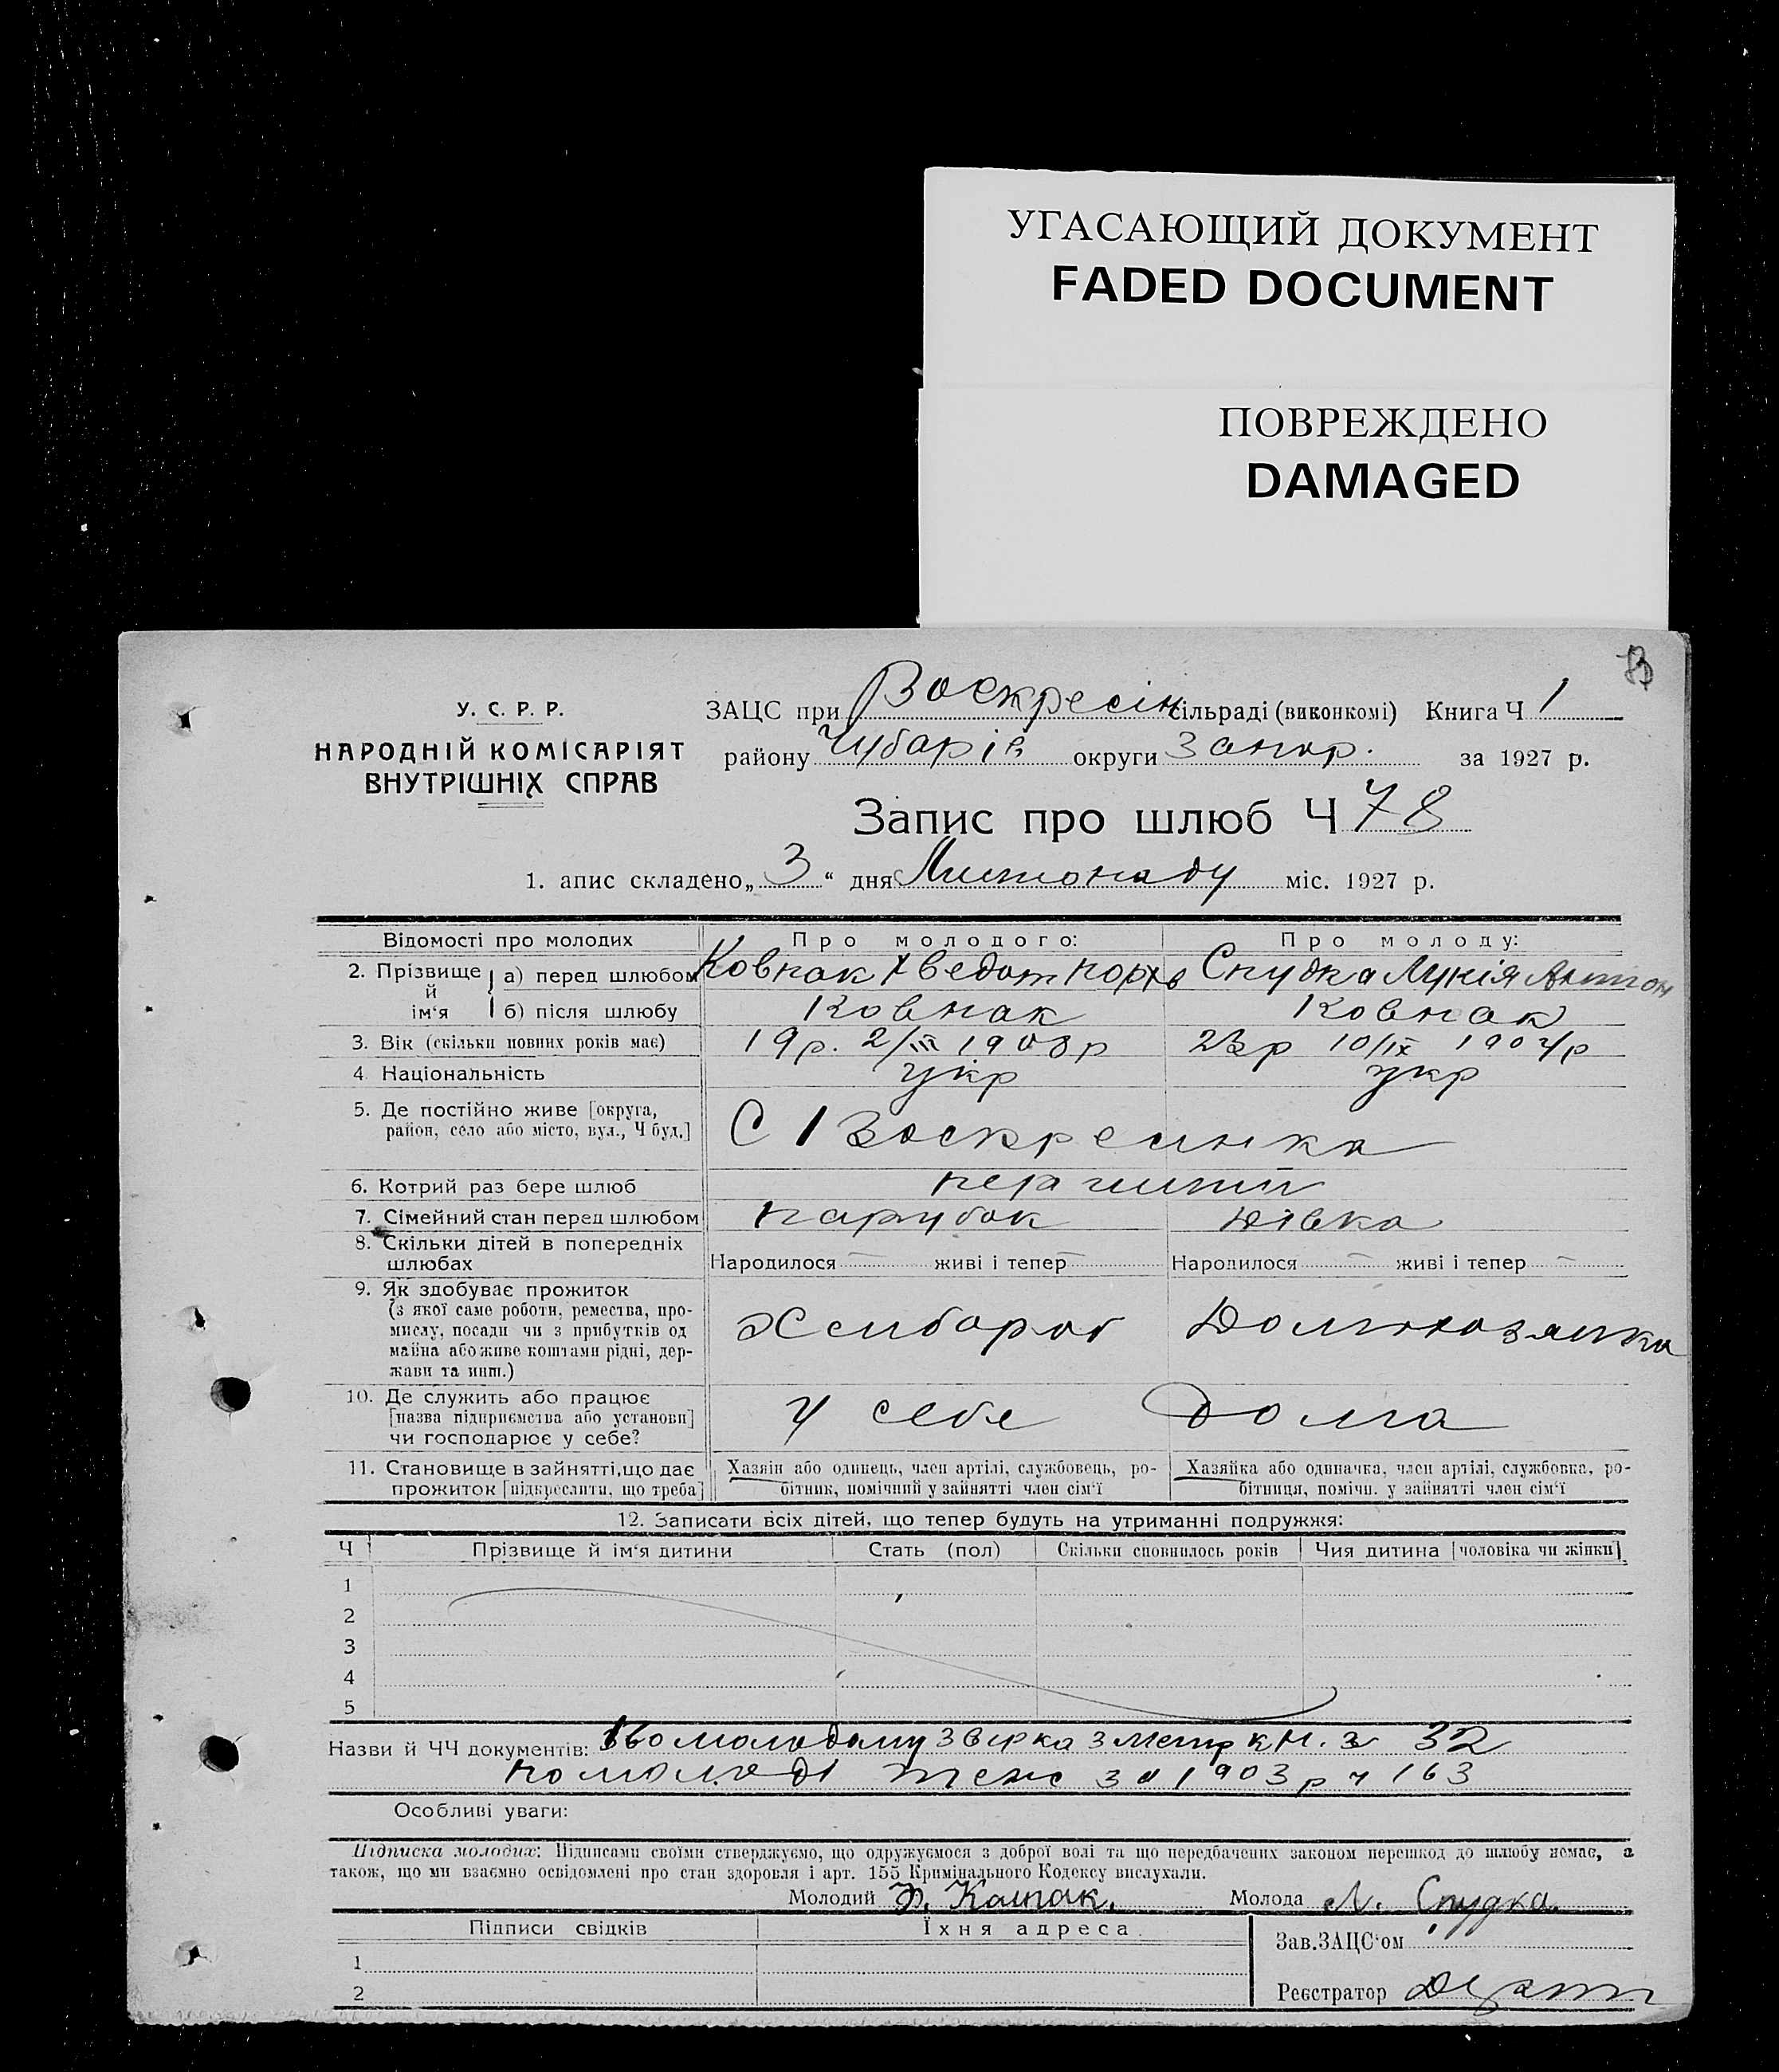 УГАСАЮЩИЙ ДОКУМЕНТ
FADED DOCUMENT
ПОВРЕЖДЕНО
DAMAGED
У. С. Р. Р.
НАРОДНІЙ КОМІСАРІЯТ
ВНУТРІШНІХ СПРАВ
ЗАЦС при Воскресін сільраді (виконкомі) Книга Ч 1
району Чубарів округи Запор. за 1927 р.
Запис про шлюб Ч 78
1. апис складено „ 3 “ дня Листопаду міс. 1927 р.
Відомості про молодих Про молодого: Про молоду:
2. Прізвище й ім‘я а) перед шлюбом Ковпак Хведот Спудка Лукія Антон
б) після шлюбу Ковпак Ковпак
3. Вік (скільки повних років має) 19р. 2/III 1908р 23р 10/IX 1904р
4. Національність укр укр
5. Де постійно живе [округа,
район, село або місто, вул., Ч буд.] С Воскресинка
6. Котрий раз бере шлюб перший
7. Сімейний стан перед шлюбом парубок дівка
8. Скільки дітей в попередніх
шлюбах Народилося — живі і тепер — Народилося — живі і тепер —
9. Як здобуває прожиток
(з якої саме роботи, ремества, про-
мислу, посади чи з прибутків од
майна або живе коштами рідні, дер-
жави та инш.) Хлибороб Домохозяйка
10. Де служить або працює
[назва підприємства або установи]
чи господарює у себе? у себе дома
11. Становище в зайнятті, що дає
прожиток [підкреслити, що треба]
Хазяін або одинець, член артілі, службовець, ро-
бітник, помічний у зайнятті член сім‘ї
Хазяйка або одиначка, член артілі, службовка, ро-
бітниця, помічн. у зайнятті член сім‘ї
12. Записати всіх дітей, що тепер будуть на утриманні подружжя:
Ч Прізвище й ім‘я дитини Стать (пол) Скільки сповнилось років Чия дитина [чоловіка чи жінки]
1
2
3
4
5
Назви й ЧЧ документів: молодому звірка з метр кн. з 32
по молоді теж за 1903р ч 163
Особливі уваги:
Підписка молодих: Підписами своїми стверджуємо, що одружуємося з доброї волі та що передбачених законом перешкод до шлюбу немає, а
також, що ми взаємно освідомлені про стан здоровля і арт. 155 Кримінального Кодексу вислухали.
Молодий Ф. Каvпак. Молода Л. Спудка.
Підписи свідків Їхня адреса
Зав. ЗАЦС‘ом
1
2
Реєстратор